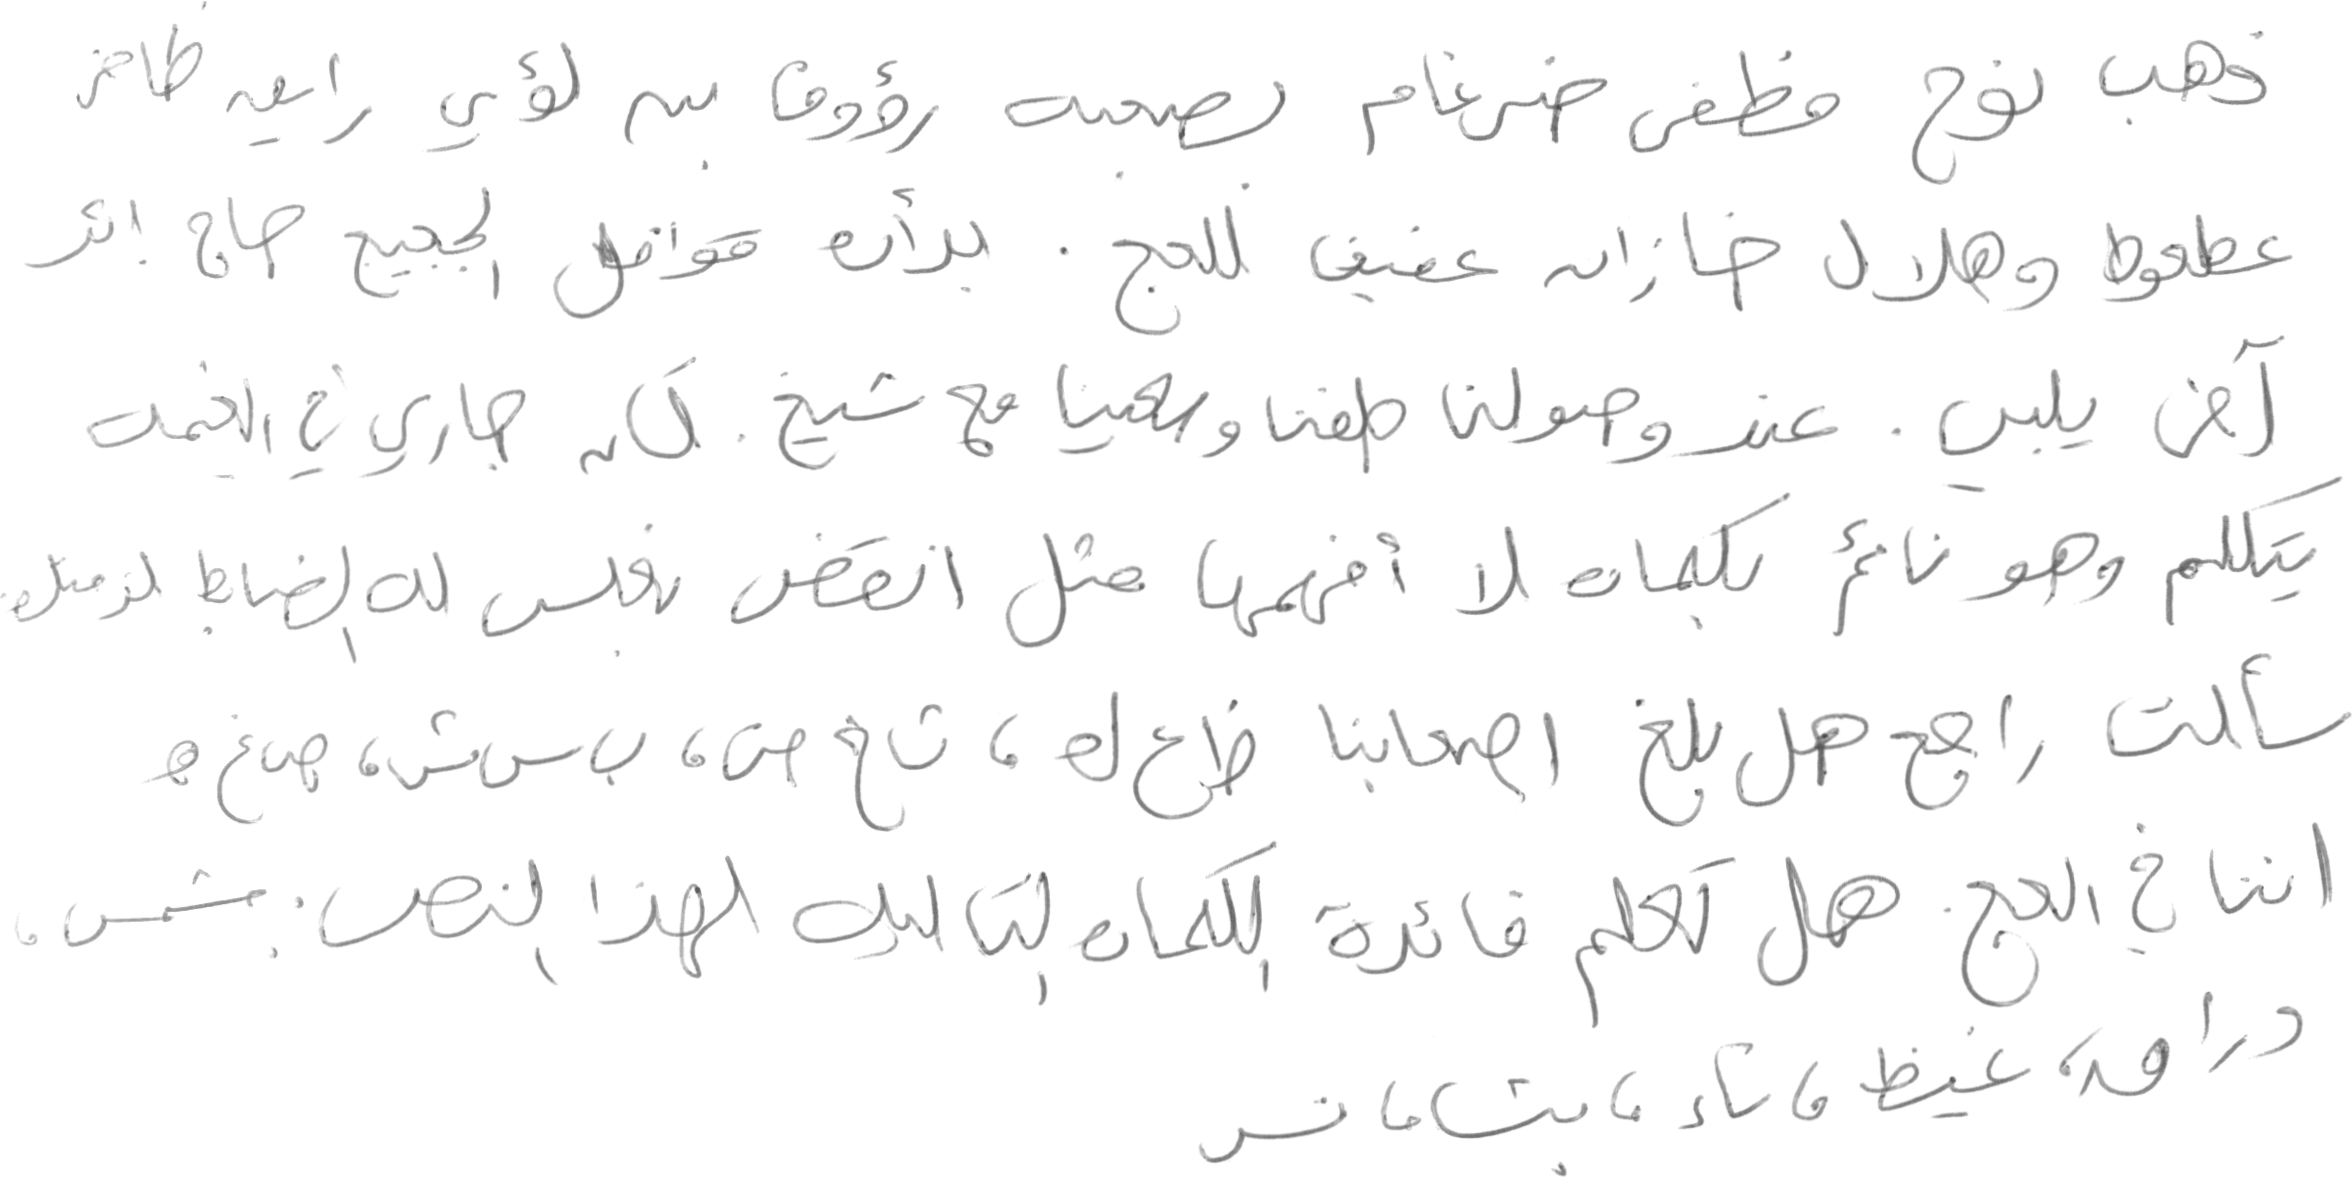 ذهب نوح مظفر ضرغام بصحبة رؤوف بن لؤي راعين ظافر
عطعوط وهلال خازن عفيف للحج . بدأت قوافل الحجيج حاج إثر
آخر يلبس . عند وصولنا طفنا وسعينا مع شيخ . كان جاري في الخيمة
يتكلم وهو نائم بكلمات لا أفهمها مثل انقضض بغلس لك الضابط لزميله
سألت راجح هل بلغ اصحابنا ظاع له ، تاخ صت ، ب س ش ، صئغ هـ
اننا في الحج . هل تعلم فائدة الكلمات التاليات لهذا النص : مشمس ،
دراق ، غيظ ، ثاء ، بث ، تس